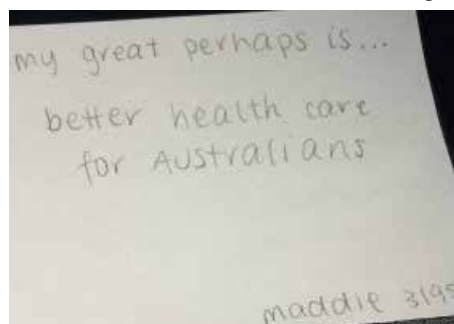 my great perhaps is...
better health care
for Australians
maddie 3195